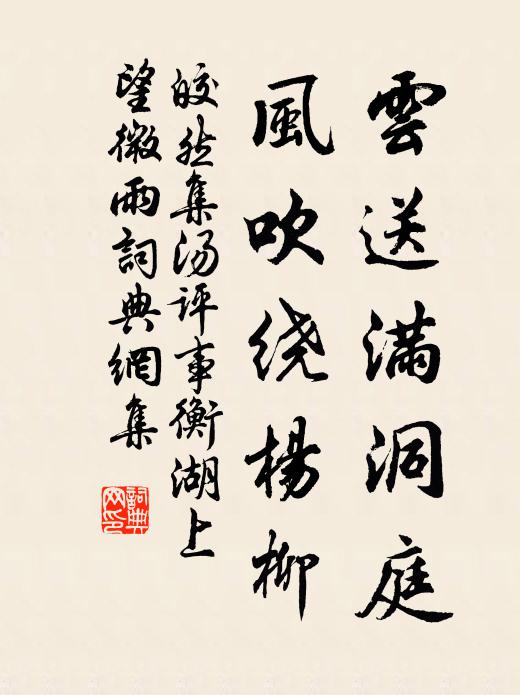 雲送满洞庭
風吹绕楊柳
皎然集汤评事衡湖上
望微雨詞典網集
詞典网印